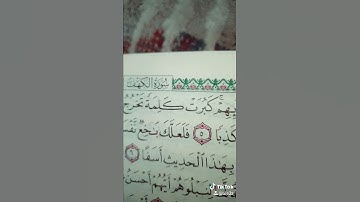 سُورَةُ الكَهْفِ
بِهِمْ كَبُرَتْ كَلِمَةً تَخْرُجُ
كَذِبًا ٥ فَلَعَلَّكَ بَاخِعٌ نَّفْسَ
بِهَٰذَا ٱلْحَدِيثِ أَسَفًا ٦
لِنَبْلُوَهُمْ أَيُّهُمْ أَحْسَنُ
TikTok